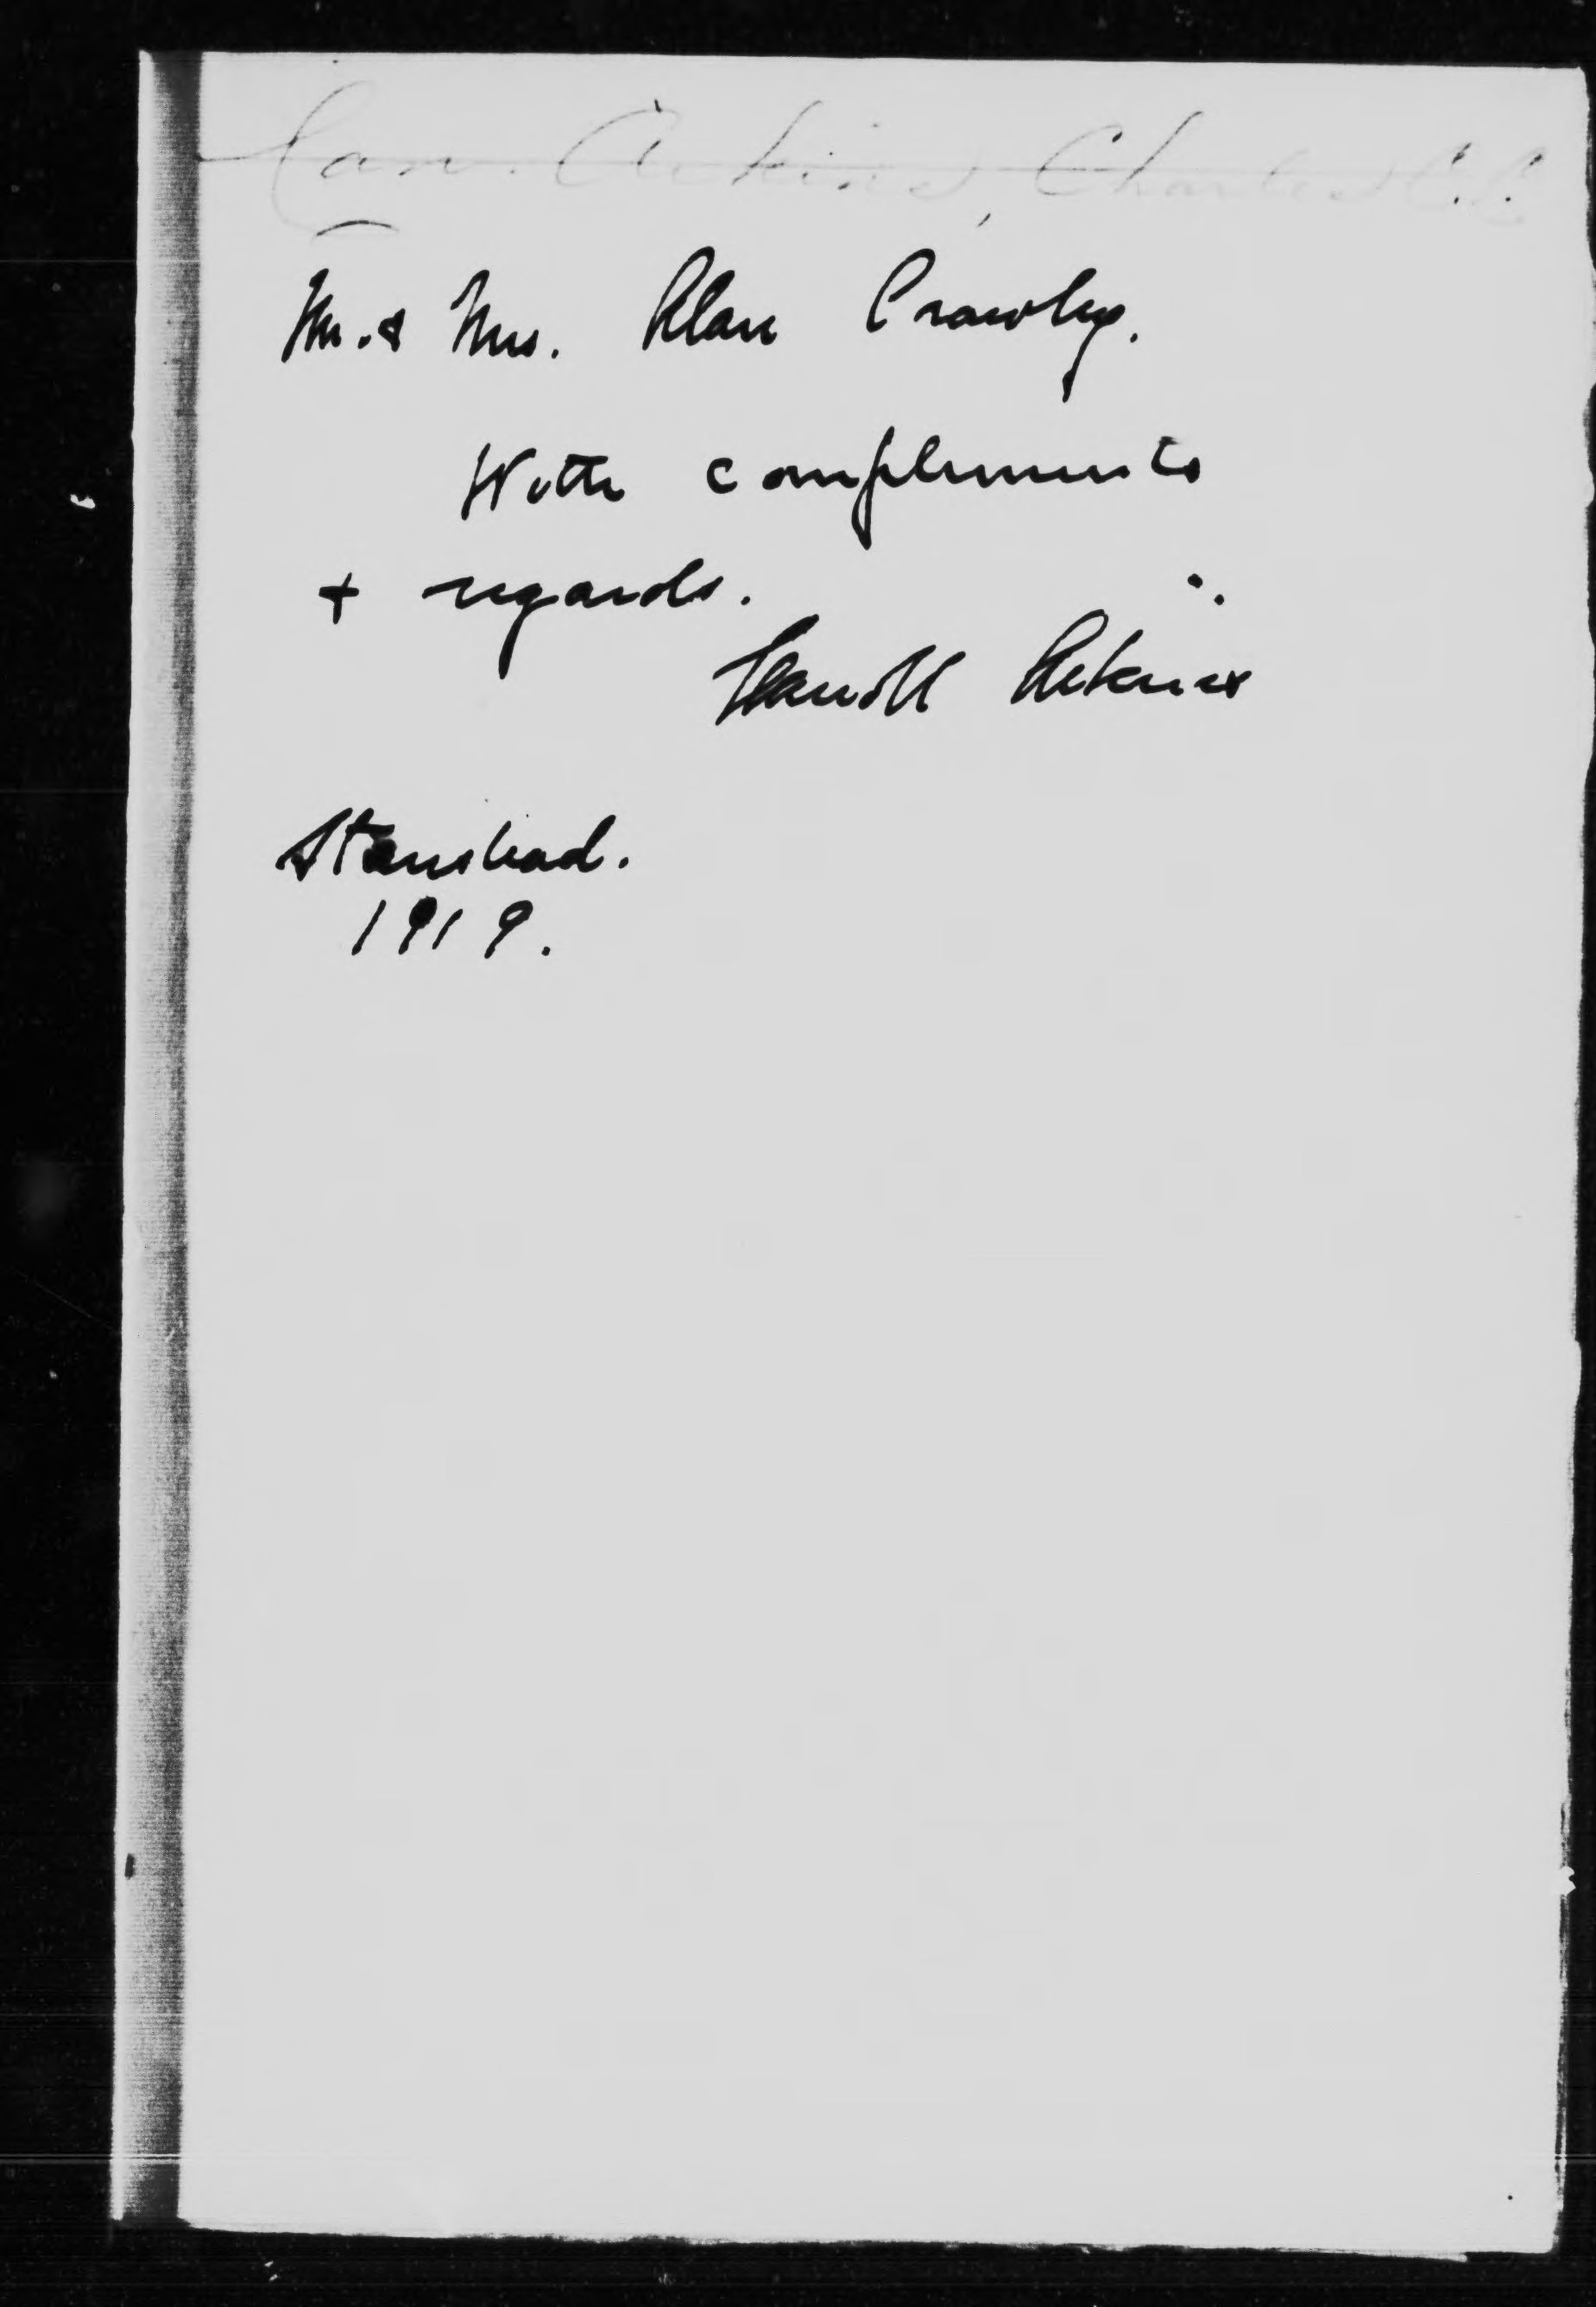 Can. Aikins, Charles
Mr. & Mrs. Alan Crawley.
With compliments
+ regards.
Carroll Aikins
1919.